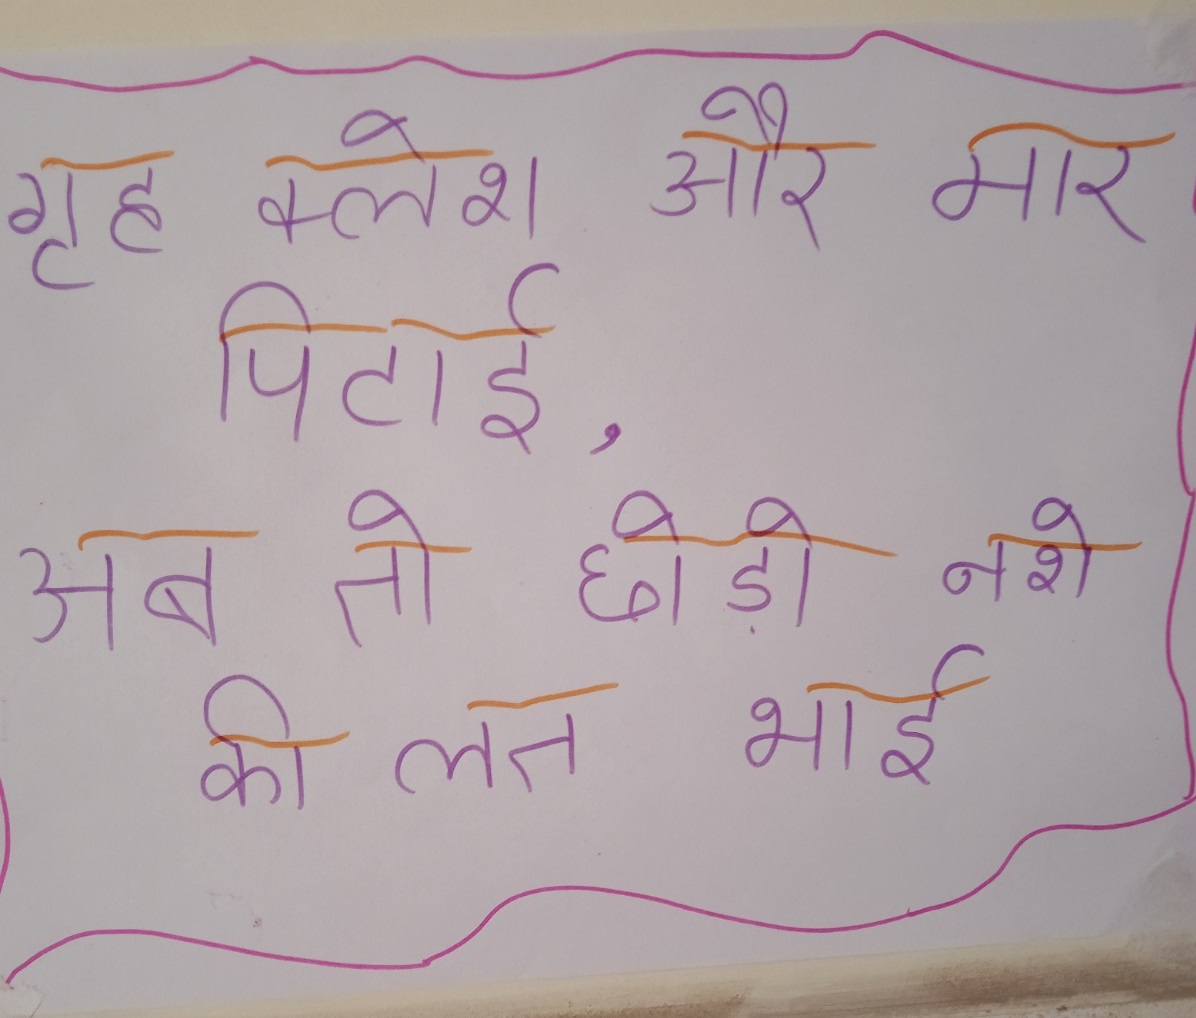 गृह क्लेश और मार
पिटाई,
अब तो छोड़ो नशे
की लत भाई